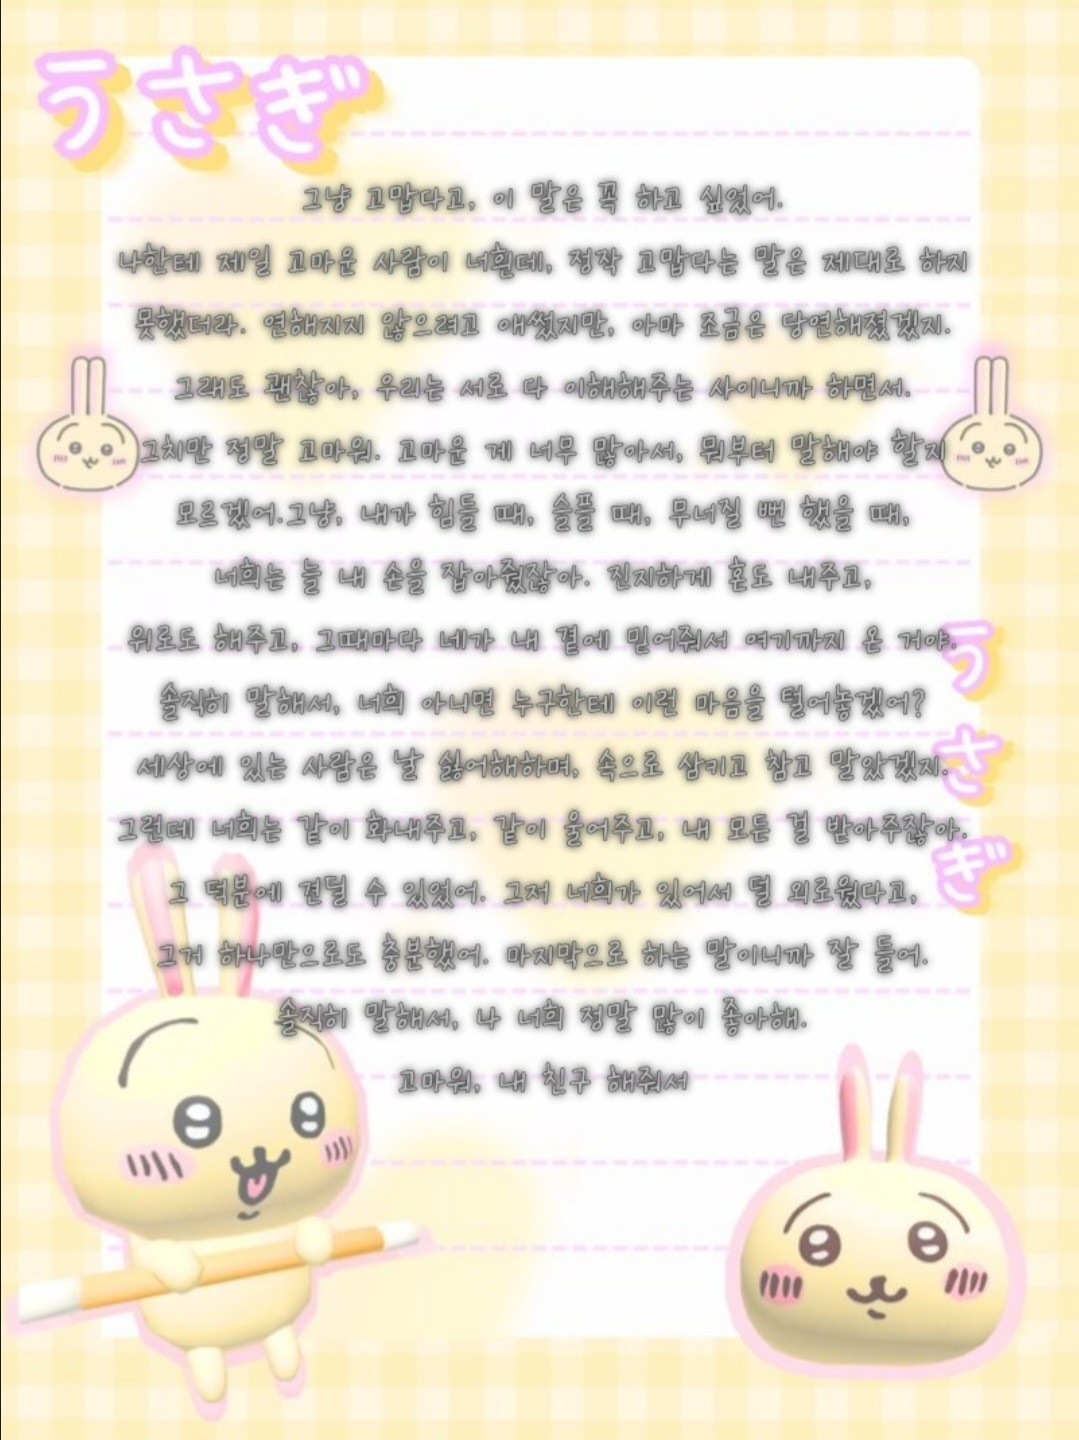 うさぎ
그냥 고맙다고, 이 말은 꼭 하고 싶었어.
나한테 제일 고마운 사람이 너흰데, 정작 고맙다는 말은 제대로 하지
못했더라. 연해지지 않으려고 애썼지만, 아마 조금은 당연해졌겠지.
그래도 괜찮아, 우리는 서로 다 이해해주는 사이니까 하면서.
그치만 정말 고마워. 고마운 게 너무 많아서, 뭐부터 말해야 할지
모르겠어.그냥, 내가 힘들 때, 슬플 때, 무너질 뻔 했을 때,
너희는 늘 내 손을 잡아줬잖아. 진지하게 혼도 내주고,
위로도 해주고, 그때마다 네가 내 곁에 믿어줘서 여기까지 온 거야.
솔직히 말해서, 너희 아니면 누구한테 이런 마음을 털어놓겠어?
세상에 있는 사람은 날 싫어해하며, 속으로 삼키고 참고 말았겠지.
그런데 너희는 같이 화내주고, 같이 울어주고, 내 모든 걸 받아주잖아.
그 덕분에 견딜 수 있었어. 그저 너희가 있어서 덜 외로웠다고,
그거 하나만으로도 충분했어. 마지막으로 하는 말이니까 잘 들어.
솔직히 말해서, 나 너희 정말 많이 좋아해.
고마워, 내 친구 해줘서
うさぎ